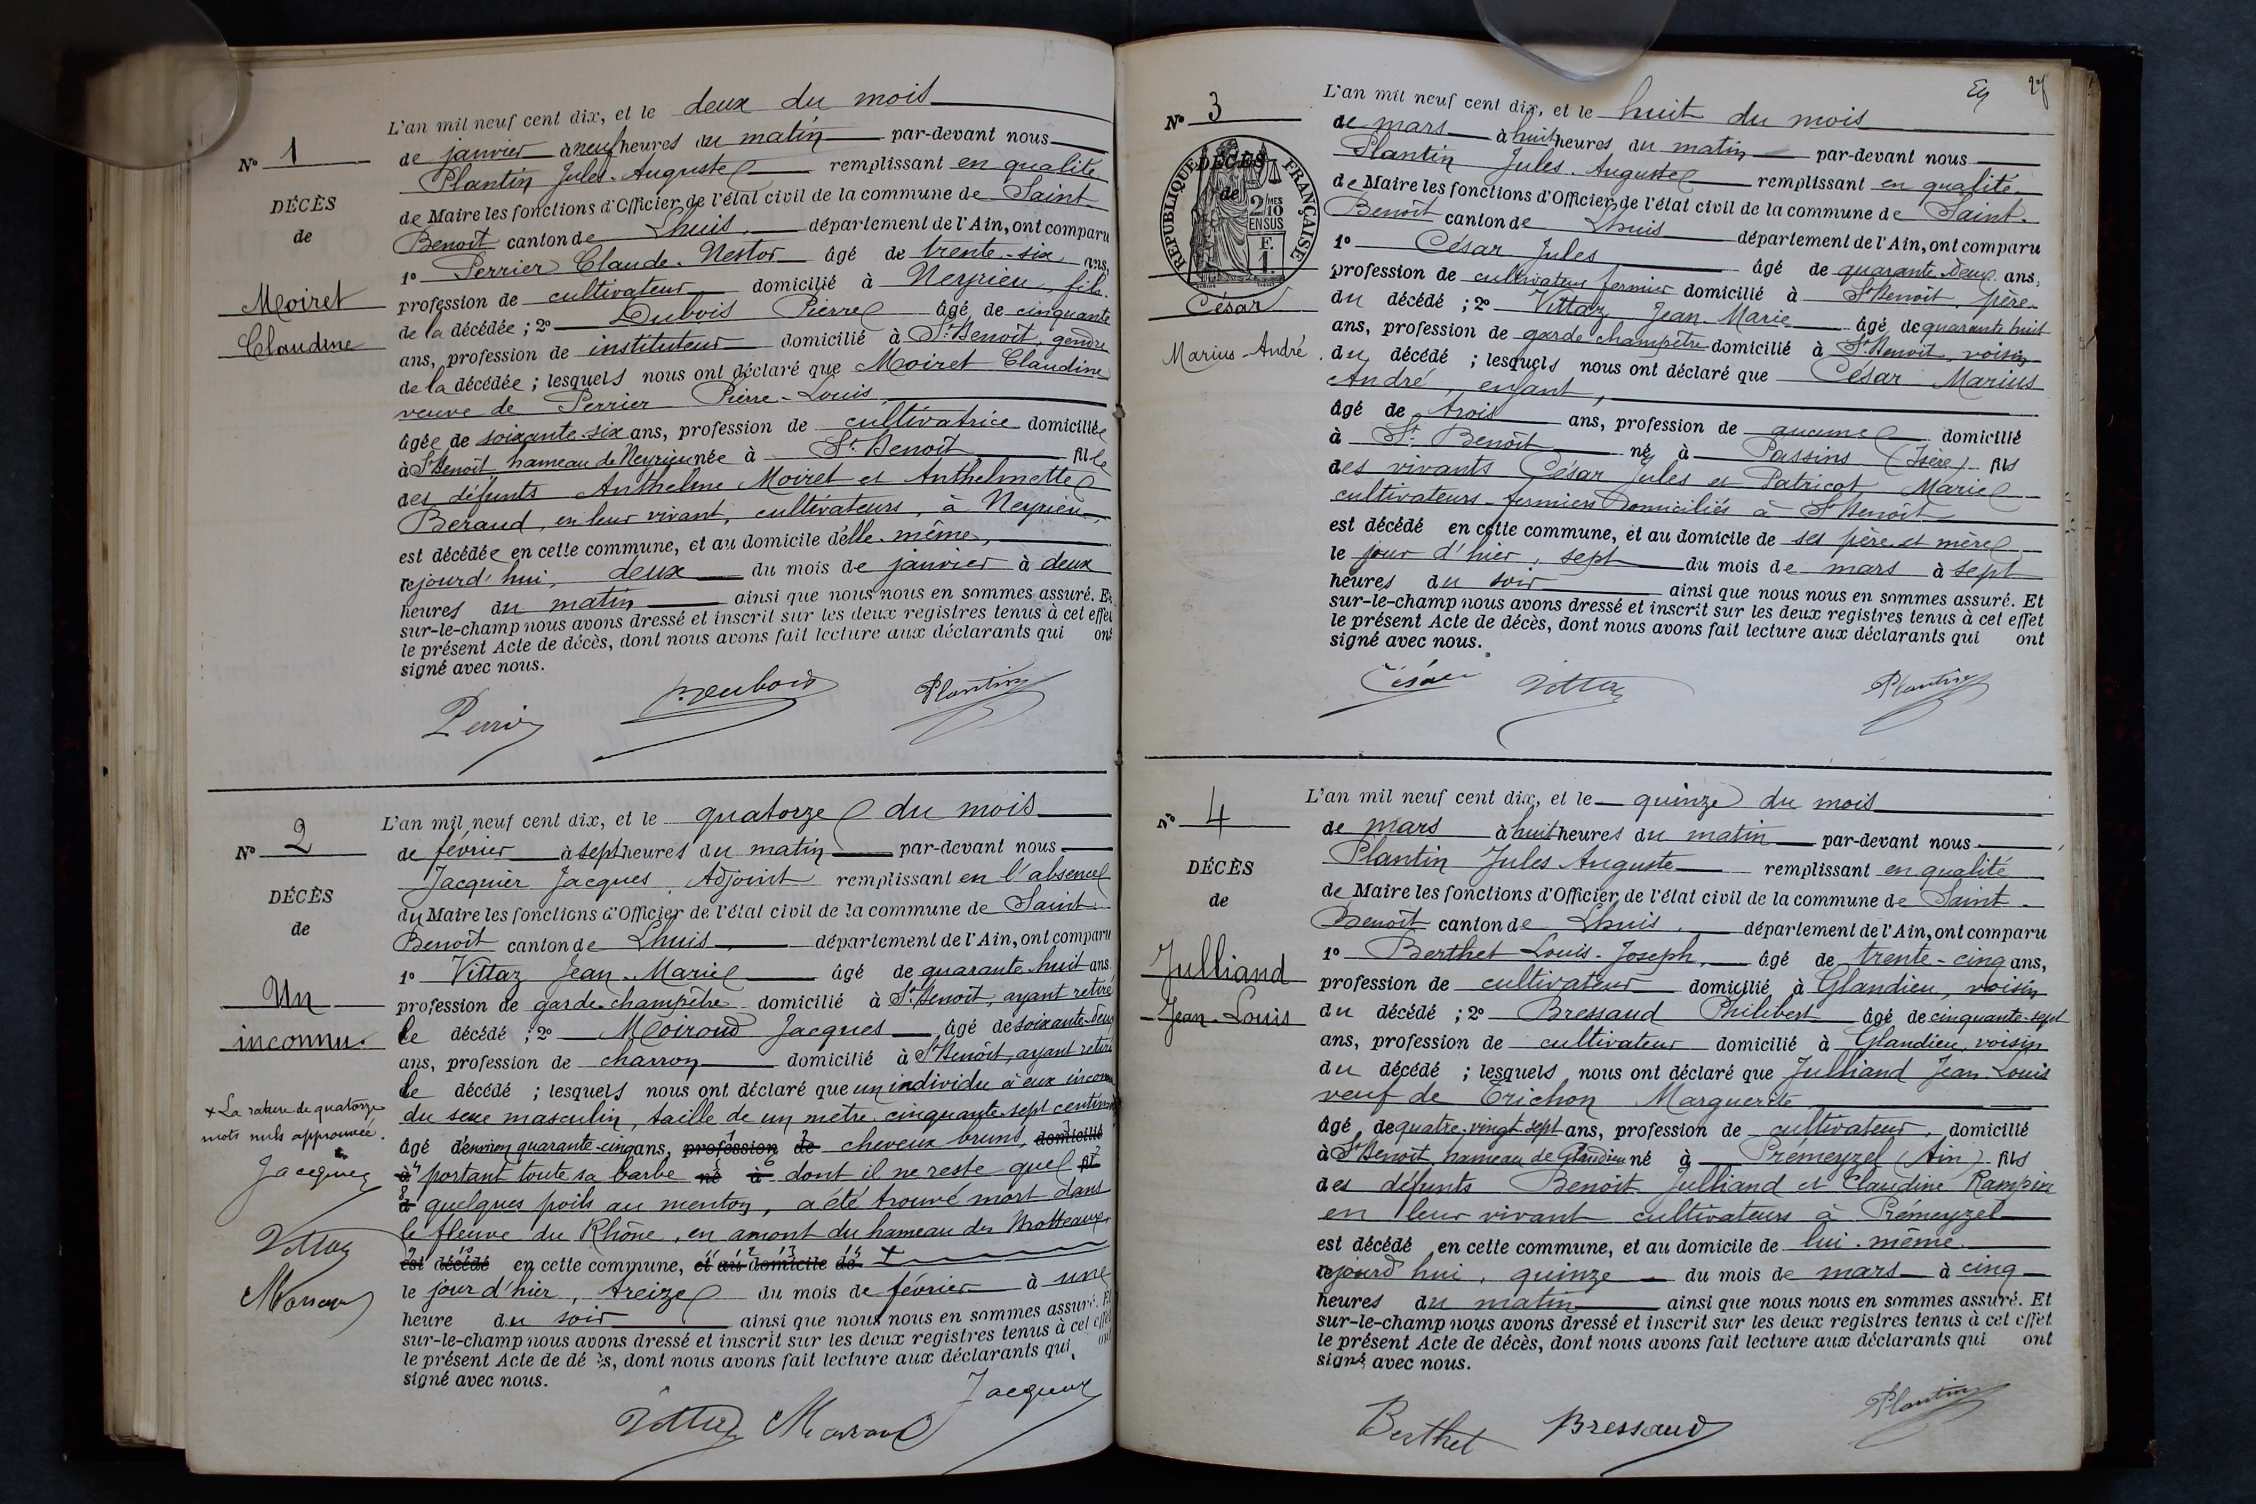 L'an mil neuf cent dix, et le deux du mois
N° 1
de janvier à neuf heures du matin par-devant nous
Plantin Jules-Auguste remplissant en qualité
DÉCÈS
de Maire les fonctions d'Officier de l'état civil de la commune de Saint-
de
Benoît canton de Lhuis département de l'Ain, ont comparu
1° Perrier Claude-Nestor âgé de trente-six ans,
Moiret
profession de cultivateur domicilié à Neyrieu, fils
de la décédée ; 2° Dubois Pierre âgé de cinquante
Claudine
ans, profession de instituteur domicilié à St-Benoît, gendre
de la décédée ; lesquels nous ont déclaré que Moiret Claudine
veuve de Perrier Pierre-Louis,
âgée de soixante-six ans, profession de cultivatrice domiciliée
à St Benoît, hameau de Neyrieu née à St. Benoît fille
des défunts Anthelme Moiret et Anthelmette
Beraud, en leur vivant, cultivateurs, à Neyrieu,
est décédée en cette commune, et au domicile d'elle-même,
cejourd'hui, deux du mois de janvier à deux
heures du matin ainsi que nous nous en sommes assuré. Et
sur-le-champ nous avons dressé et inscrit sur les deux registres tenus à cet effet
le présent Acte de décès, dont nous avons fait lecture aux déclarants qui ont
signé avec nous.
Perrier P. Dubois Plantin
L'an mil neuf cent dix, et le quatorze du mois
N° 2
de février à sept heures du matin par-devant nous
Jacquier Jacques, Adjoint remplissant en l'absence
DÉCÈS
du Maire les fonctions d'Officier de l'état civil de la commune de Saint-
de
Benoît canton de Lhuis département de l'Ain, ont comparu
1° Vittaz Jean-Marie âgé de quarante-huit ans
Un
profession de garde-champêtre domicilié à St-Benoît, ayant retiré
le décédé ; 2° Moiroud Jacques âgé de soixante-deux
inconnu.
ans, profession de charron domicilié à St-Benoît, ayant retiré
le décédé ; lesquels nous ont déclaré que un individu à eux inconnu
+ La rature de quatorze
du sexe masculin, taille de un mètre cinquante-sept centim
mots nuls approuvée.
âgé d'environ quarante-cinq ans, profession de cheveux bruns, domicilié
Jacquier
à portant toute sa barbe né à dont il ne reste que fil
d quelques poils au menton, a été trouvé mort dans
le fleuve du Rhône, en amont du hameau des Brotteaux
Vittaz
est décédé en cette commune, et au domicile de +
Moiroud
le jour d'hier, treize du mois de février à une
heure du soir ainsi que nous nous en sommes assuré. Et
sur-le-champ nous avons dressé et inscrit sur les deux registres tenus à cet effet
le présent Acte de décès, dont nous avons fait lecture aux déclarants qui ont
signé avec nous.
Vittaz Moiroud Jacquier
27
L'an mil neuf cent dix, et le huit du mois
N° 3
de mars à huit heures du matin par-devant nous
Plantin Jules-Auguste remplissant en qualité
RÉPUBLIQUE FRANÇAISE
DÉCÈS
de
2/10 MES EN SUS
F. 1.
de Maire les fonctions d'Officier de l'état civil de la commune de Saint-
Benoît canton de Lhuis département de l'Ain, ont comparu
1° César Jules âgé de quarante-deux ans,
profession de cultivateur fermier domicilié à St Benoît, père
César
du décédé ; 2° Vittaz Jean-Marie âgé de quarante-huit
ans, profession de garde champêtre domicilié à St Benoît, voisin
Marius-André
du décédé ; lesquels nous ont déclaré que César Marius
André, enfant,
âgé de trois ans, profession de aucune domicilié
à St Benoît né à Passins (Isère) fils
des vivants César Jules et Patricot Marie
cultivateurs-fermiers domiciliés à St Benoît
est décédé en cette commune, et au domicile de ses père et mère
le jour d'hier, sept du mois de mars à sept
heures du soir ainsi que nous nous en sommes assuré. Et
sur-le-champ nous avons dressé et inscrit sur les deux registres tenus à cet effet
le présent Acte de décès, dont nous avons fait lecture aux déclarants qui ont
signé avec nous.
César Vittaz Plantin
L'an mil neuf cent dix, et le quinze du mois
N° 4
de mars à huit heures du matin par-devant nous
Plantin Jules Auguste remplissant en qualité
DÉCÈS
de Maire les fonctions d'Officier de l'état civil de la commune de Saint-
de
Benoît canton de Lhuis département de l'Ain, ont comparu
1° Berthet Louis-Joseph, âgé de trente-cinq ans,
Julliand
profession de cultivateur domicilié à Glandieu, voisin
Jean-Louis
du décédé ; 2° Bressaud Philibert âgé de cinquante-sept
ans, profession de cultivateur domicilié à Glandieu, voisin
du décédé ; lesquels nous ont déclaré que Julliand Jean-Louis
veuf de Trichon Marguerite
âgé de quatre-vingt-sept ans, profession de cultivateur, domicilié
à St Benoît, hameau de Glandieu né à Prémeyzel (Ain) fils
des défunts Benoît Julliand et Claudine Rampin
en leur vivant cultivateurs à Prémeyzel
est décédé en cette commune, et au domicile de lui-même
cejourd'hui, quinze du mois de mars à cinq
heures du matin ainsi que nous nous en sommes assuré. Et
sur-le-champ nous avons dressé et inscrit sur les deux registres tenus à cet effet
le présent Acte de décès, dont nous avons fait lecture aux déclarants qui ont
signé avec nous.
Berthet Bressaud Plantin